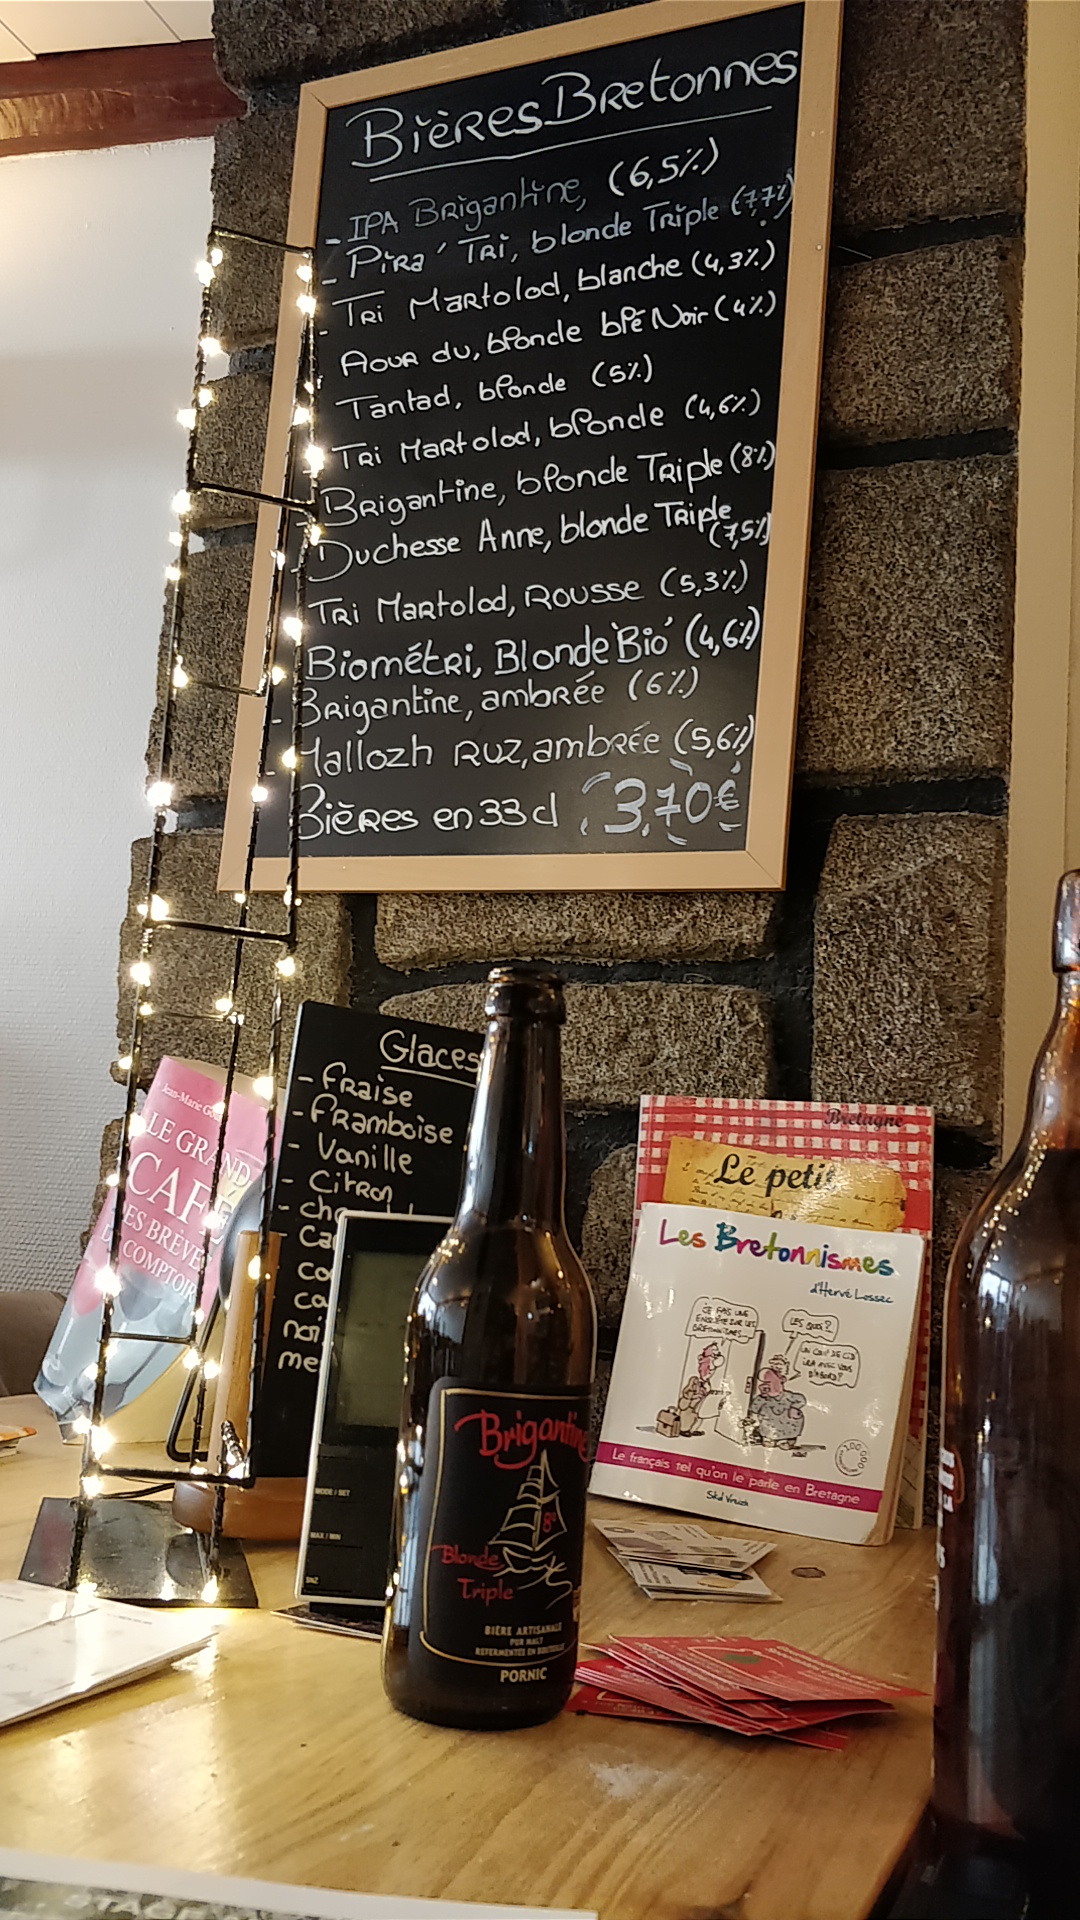 Bières Bretonnes
- IPA Brigantine, (6,5%)
- Pira' Tri, blonde Triple (7,7%)
- Tri Martolod, blanche (4,3%)
Aour du, blonde blé Noir (4%)
Tantad, blonde (5%)
Tri Martolod, blonde (4,6%)
- Brigantine, blonde Triple (8%)
Duchesse Anne, blonde Triple
(7,5%)
Tri Martolod, Rousse (5,3%)
Biométri, Blonde 'Bio' (4,6%)
- Brigantine, ambrée (6%)
- Mallozh Ruz, ambrée (5,6%)
Bières en 33 cl 3,70€
Glaces
- Fraise
- Framboise
- Vanille
- Citron
- cho
- Ca
co
ca
noi
me
Jean-Marie
LE GRAND
CAFÉ
DES BRÈVES
DE COMPTOIR
MODE / SET
MAX / MIN
Brigantine
8°
Blonde
Triple
BIÈRE ARTISANALE
PUR MALT
REFERMENTÉE EN BOUTEILLE
PORNIC
Bretagne
Le petit
Les Bretonnismes
d'Hervé Lossec
JE FAIS UNE
ENQUÊTE SUR LES
BRETONNISMES...
LES QUOI ?
UN COUP DE CID
IRA AVEC VOUS
D'ABORD ?
100 000
Le français tel qu'on le parle en Bretagne
Skol Vreizh
STAGE